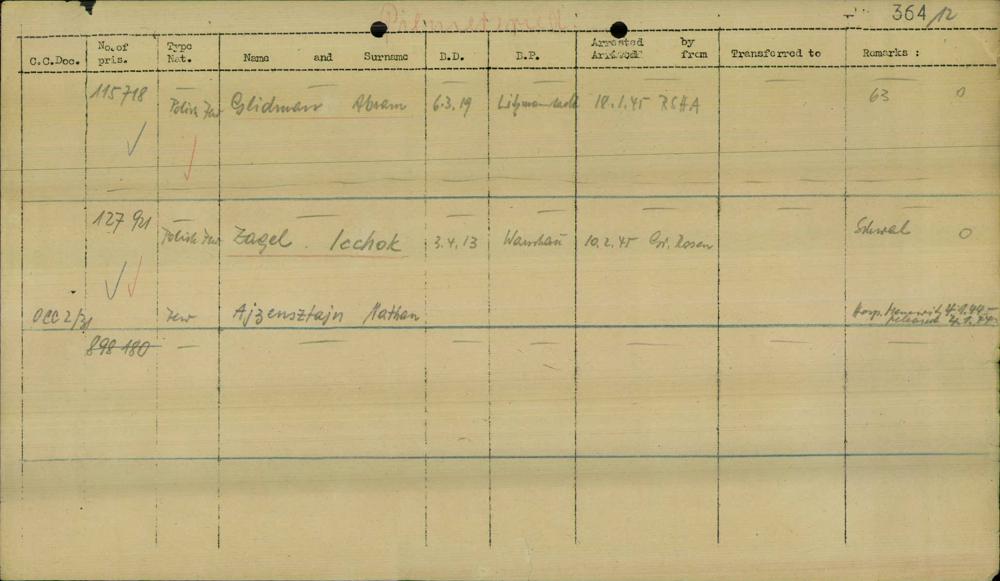 364/12
C.C.Doc. No. of pris. Type Nat. Name and Surname B.D. B.P. Arrested Arrived by from Transferred to Remarks :
115718 Polish Jew Glidman Abram 6.3.19 Litzmannstadt 18.1.45 RSHA 63 0
127921 Polish Jew Zagel Icchok 3.4.13 Warschau 10.2.45 Gr. Rosen 0
OCC 2/31 Jew Ajzensztajn Nathan Hosp. Monowitz
released
898 180